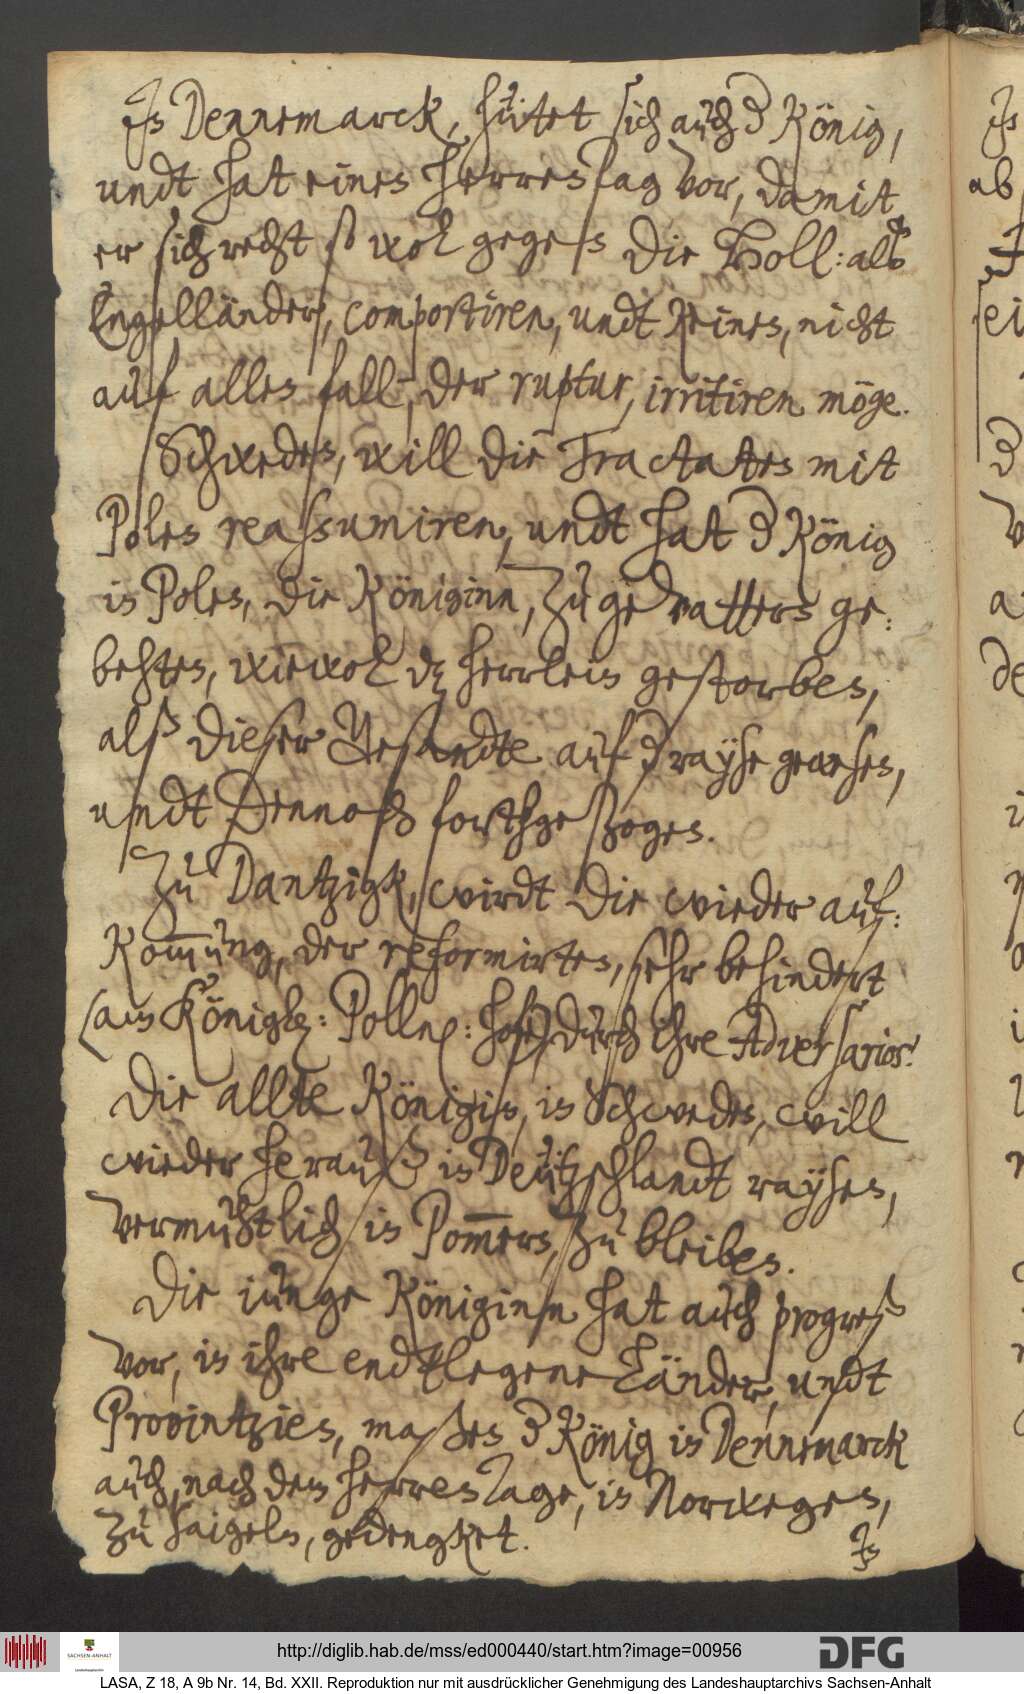 In Dennemarck, hütet sich auch d König,
undt hat einen HerrenTag vor, damit
er sich recht so wol gegen die Holl: alß
Engelländer, comportiren, undt Keinen, nicht
auf allen fall, der ruptur, irritiren möge.
Schweden, will die Tractaten mit
Polen reassumiren, undt hat d König
in Polen, die Königinn, zu gevattern ge¬
behten, wiewol dz herrlein gestorben,
alß dieser Gesandte auf d rayse gewesen,
undt dennoch forthgeßogen.
Zu Dantzigk, wirdt die wieder auf¬
Kommung, der reformirten, sehr behindert
(am Königl: Polln: hofe) durch ihre Adversarios.
Die allte Königin, in Schweden, will
wieder herauß in Deützschlandt raysen,
vermuhtlich in Pommern, zu bleiben.
Die iunge Königinn hat auch progreß
vor, in ihre endtlegene Länder, undt
Provintzien, maßen d König in Dennemarck
auch, nach dem HerrenTage, in Norwegen,
zu saigeln, gedengket.
In
http://diglib.hab.de/mss/ed000440/start.htm?image=00956
SACHSEN-ANHALT
DFG
LASA, Z 18, A 9b Nr. 14, Bd. XXII. Reproduktion nur mit ausdrücklicher Genehmigung des Landeshauptarchivs Sachsen-Anhalt